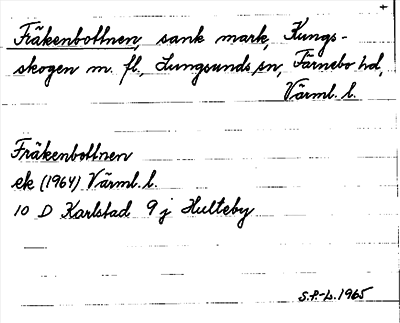 +
Fräkenbottnen, sank mark, Kungs-
skogen m. fl., Lungsunds sn, Färnebo hd,
Värml. l.
Fräkenbottnen
ek (1964) Värml. l.
10 D Karlstad 9 j Hulteby
S.P-L. 1965